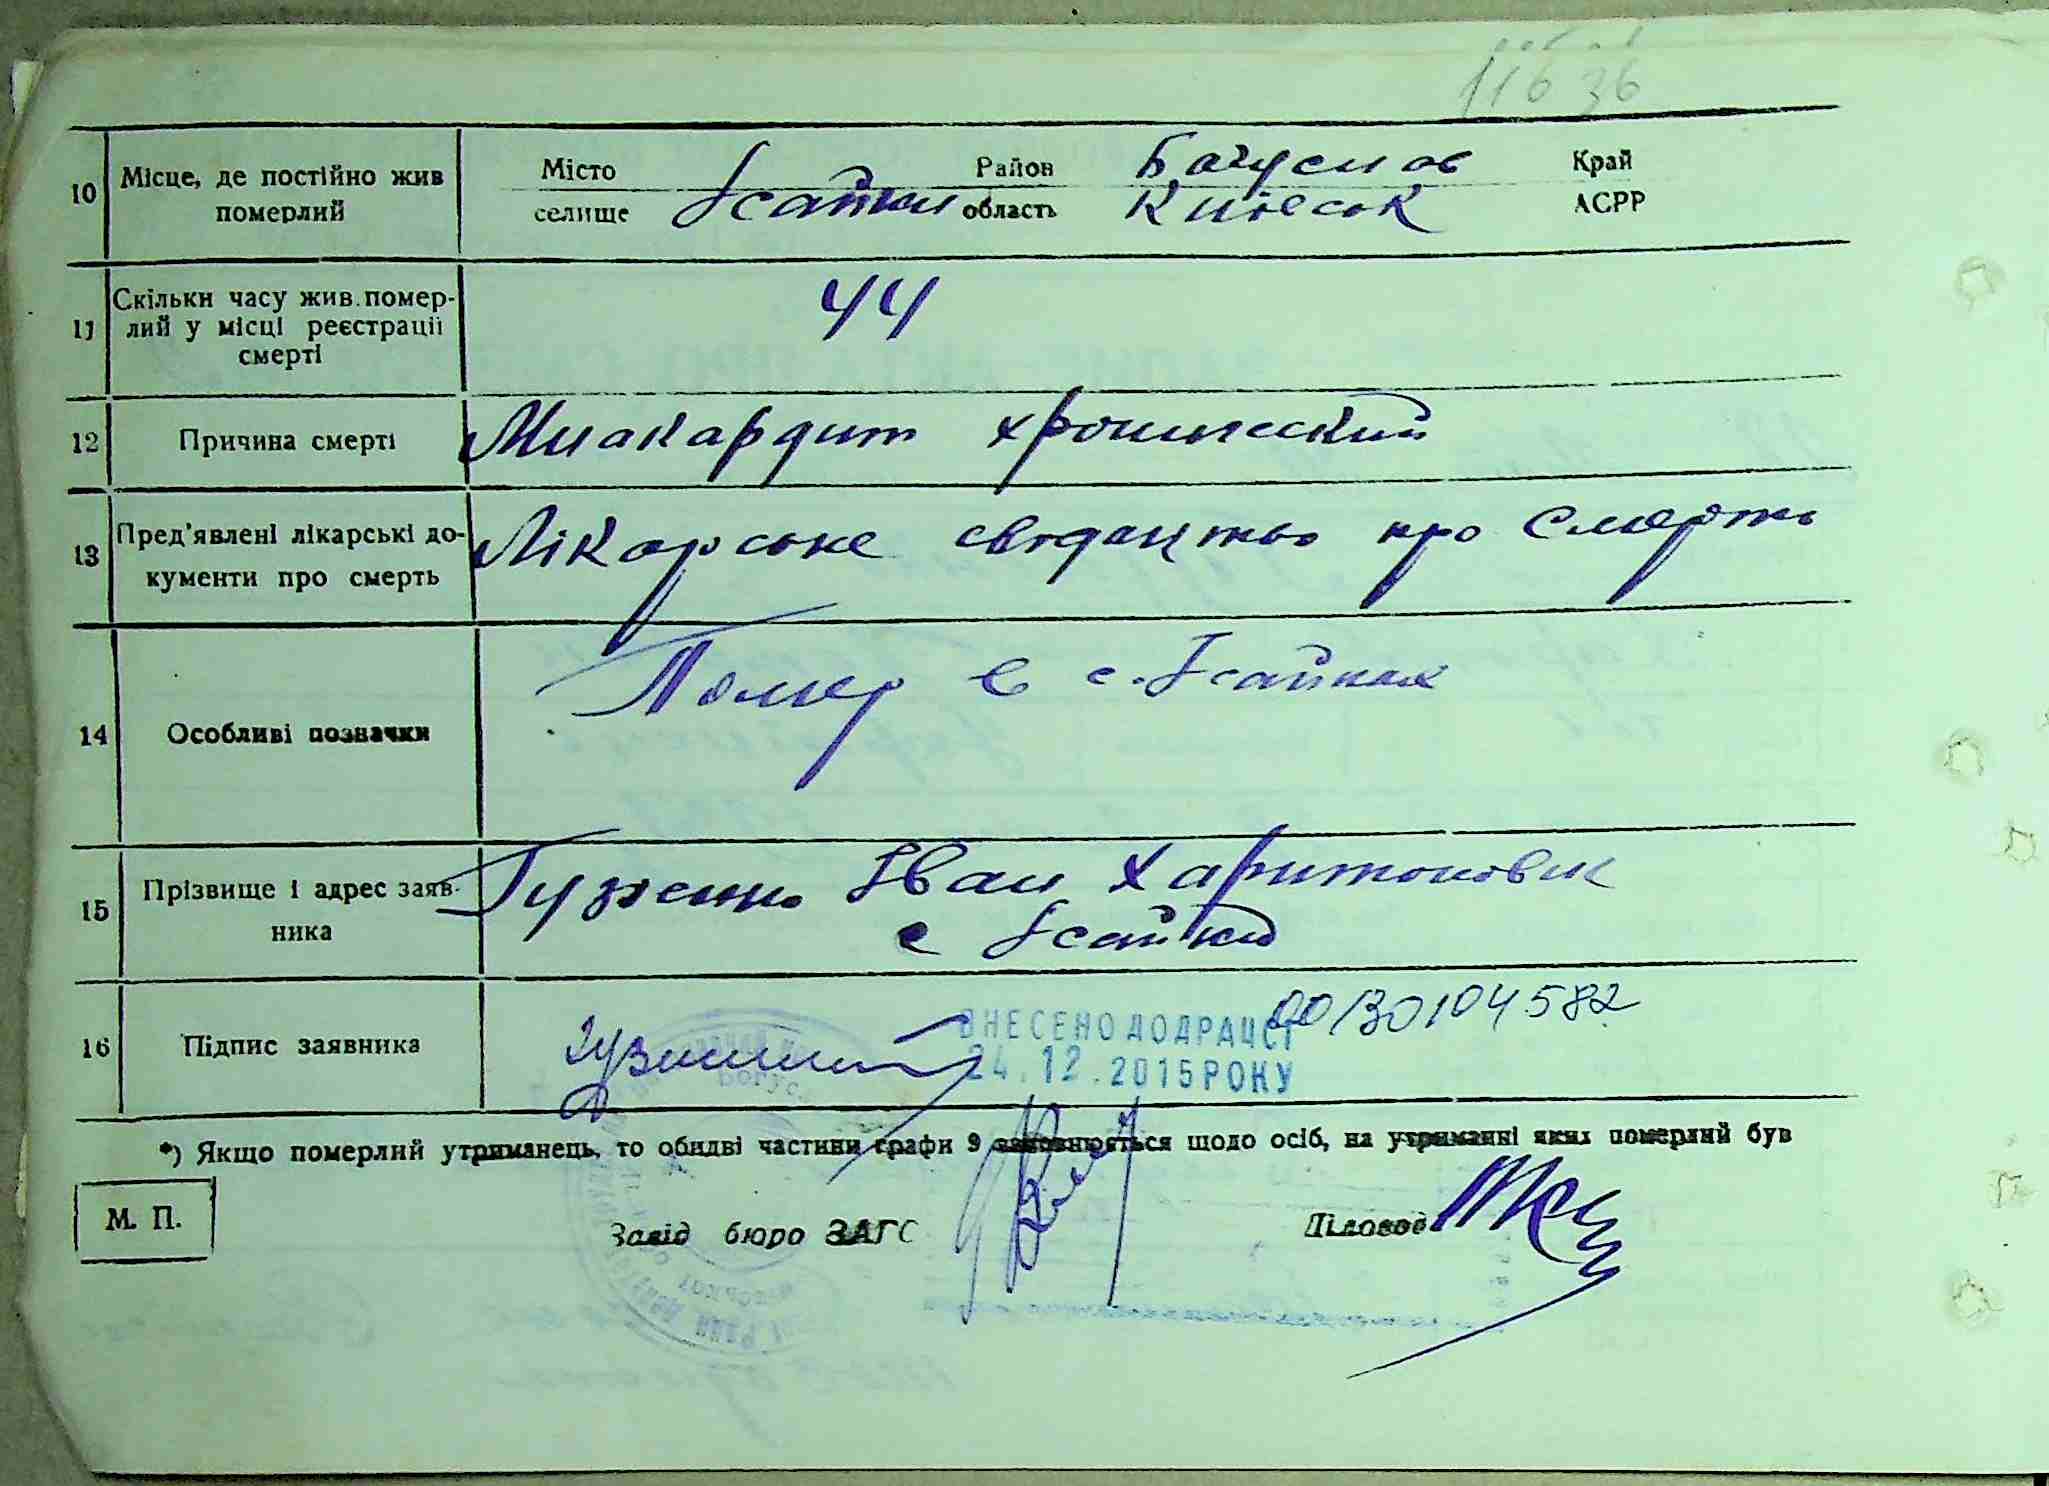 11636
10 Місце, де постійно жив померлий
Місто
селище Ісайки
Район Богуслав
область Київськ
Край
АСРР
11 Скільки часу жив помер-
лий у місці реєстрації
смерті
44
12 Причина смерті
Миакардит хронический
13 Пред'явлені лікарські до-
кументи про смерть
Лікарське свідацтво про смерть
14 Особливі позначки
Помер в с. Ісайках
15 Прізвище і адрес заяв-
ника
Гузенко Іван Харитонович
с Ісайки
16 Підпис заявника
00130104582
ВНЕСЕНО ДО ДРАЦСГ
24.12.2015 РОКУ
*) Якщо померлий утриманець, то обидві частини графи 9 заповнюється щодо осіб, на утриманні яких померлий був
М. П.
Завід бюро ЗАГС
Діловод